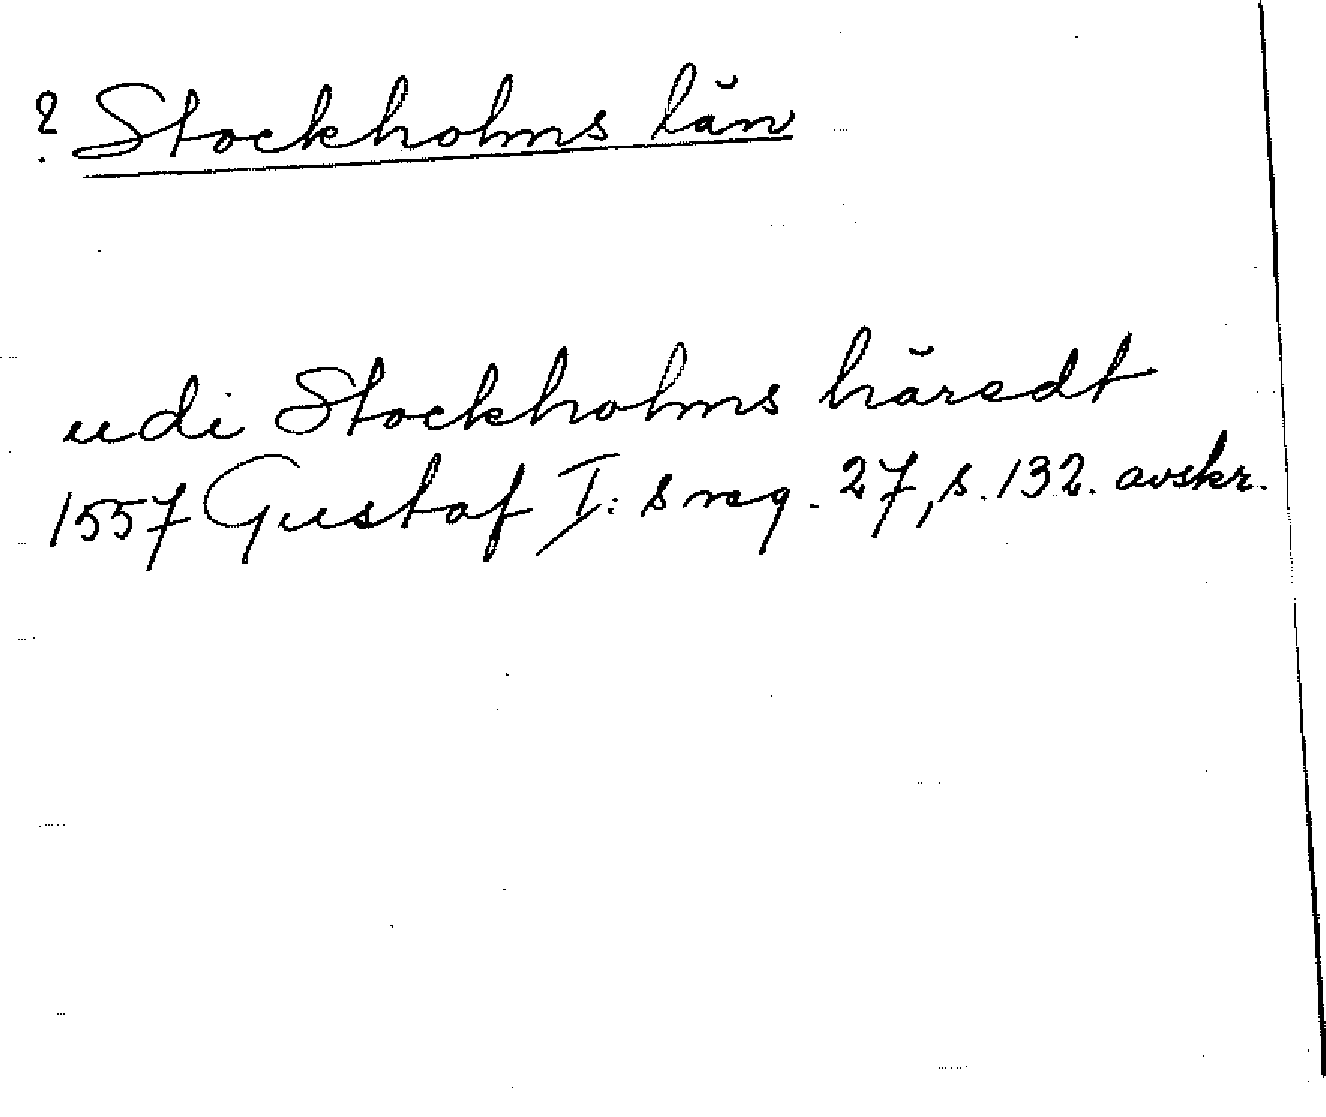 ? Stockholms län
udi Stockholms häredt
1557 Gustaf I:s reg. 27, s. 132. avskr.